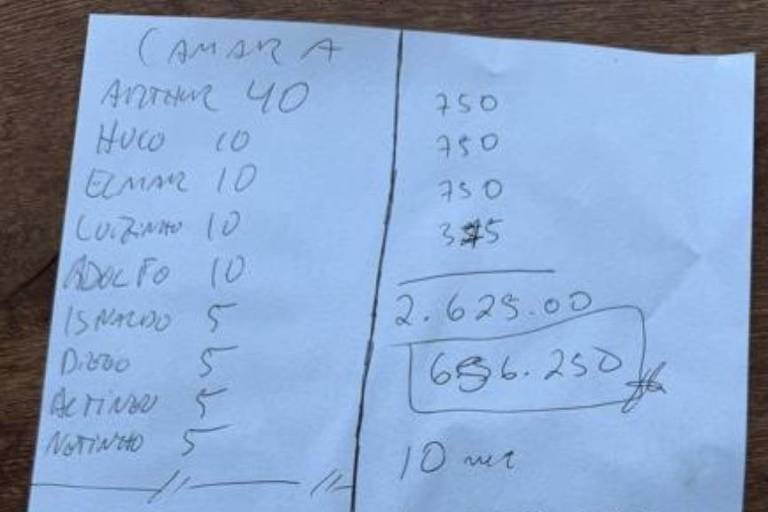 CAMARA
ARTHUR 40
HUGO 10
ELMAR 10
LUIZINHO 10
ADOLFO 10
ISNALDO 5
DIEGO 5
ALTINEU 5
NETINHO 5
750
750
750
375
2.625.00
656.250
10